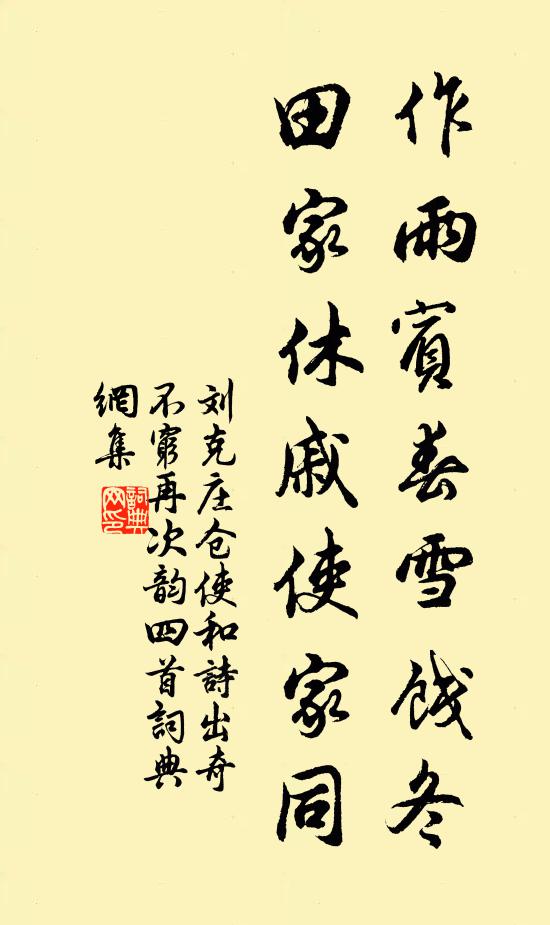 作雨賓春雪餞冬
田家休戚使家同
刘克庄仓使和詩出奇
不窮再次韵四首詞典
網集
詞典網印